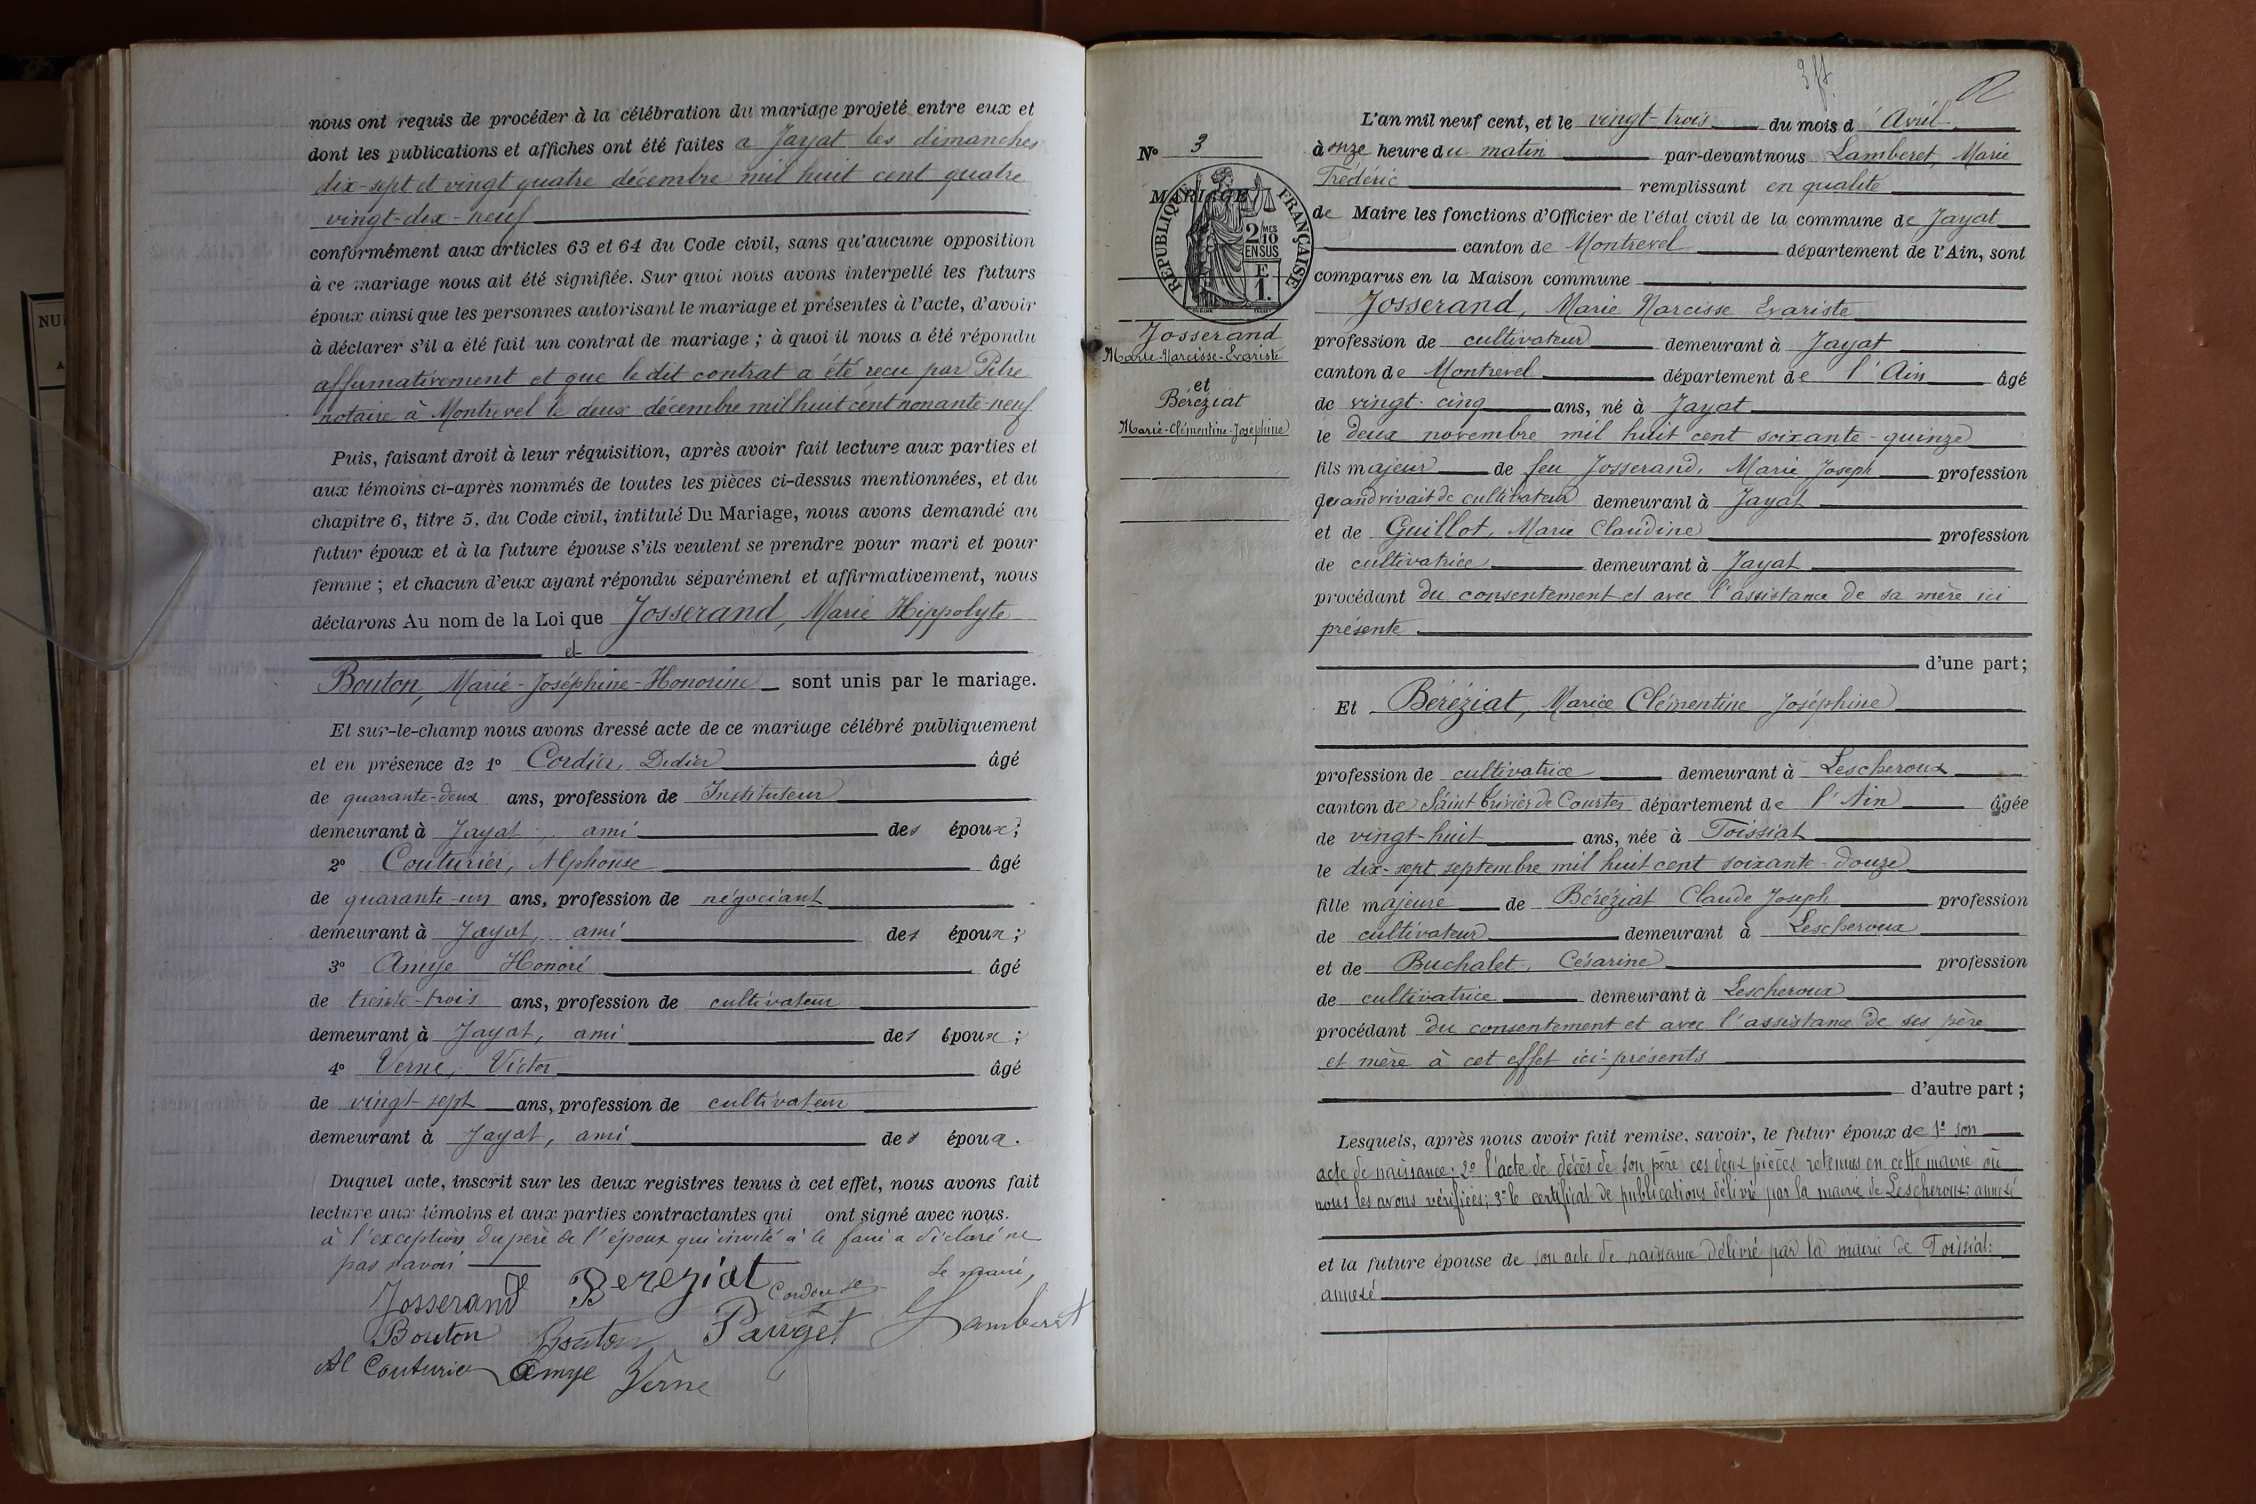 nous ont requis de procéder à la célébration du mariage projeté entre eux et
dont les publications et affiches ont été faites a Jayat les dimanches
dix-sept et vingt quatre décembre mil huit cent quatre
vingt-dix-neuf
conformément aux articles 63 et 64 du Code civil, sans qu'aucune opposition
à ce mariage nous ait été signifiée. Sur quoi nous avons interpellé les futurs
époux ainsi que les personnes autorisant le mariage et présentes à l'acte, d'avoir
à déclarer s'il a été fait un contrat de mariage ; à quoi il nous a été répondu
affirmativement et que le dit contrat a été reçu par Pitre
notaire à Montrevel le deux décembre mil huit cent nonante-neuf
Puis, faisant droit à leur réquisition, après avoir fait lecture aux parties et
aux témoins ci-après nommés de toutes les pièces ci-dessus mentionnées, et du
chapitre 6, titre 5, du Code civil, intitulé Du Mariage, nous avons demandé au
futur époux et à la future épouse s'ils veulent se prendre pour mari et pour
femme ; et chacun d'eux ayant répondu séparément et affirmativement, nous
déclarons Au nom de la Loi que Josserand, Marie Hippolyte
et
Bouton, Marie-Joséphine-Honorine sont unis par le mariage.
Et sur-le-champ nous avons dressé acte de ce mariage célébré publiquement
et en présence de 1° Cordier, Didier âgé
de quarante-deux ans, profession de Instituteur
demeurant à Jayat, ami des époux ;
2° Couturier, Alphonse âgé
de quarante-un ans, profession de négociant
demeurant à Jayat, ami des époux ;
3° Amye Honoré âgé
de trente-trois ans, profession de cultivateur
demeurant à Jayat, ami des époux ;
4° Verne, Victor âgé
de vingt-sept ans, profession de cultivateur
demeurant à Jayat, ami des époux.
Duquel acte, inscrit sur les deux registres tenus à cet effet, nous avons fait
lecture aux témoins et aux parties contractantes qui ont signé avec nous.
à l'exception du père de l'époux qui invité à le faire a déclaré ne
pas savoir
Le maire,
Josserand Bereziat
Bouton Bouton Pauget Lamberet
Al Couturier Amye Verne
N° 3
MARIAGE
RÉPUBLIQUE FRANÇAISE
2 MES
10
EN SUS
Josserand
Marie-Narcisse-Evariste
et
Béréziat
Marie-Clémentine-Joséphine
L'an mil neuf cent, et le vingt-trois du mois d'Avril
à onze heure du matin par-devant nous Lamberet, Marie
Frédéric remplissant en qualité
de Maire les fonctions d'Officier de l'état civil de la commune de Jayat
canton de Montrevel département de l'Ain, sont
comparus en la Maison commune
Josserand, Marie Narcisse Evariste
profession de cultivateur demeurant à Jayat
canton de Montrevel département de l'Ain âgé
de vingt-cinq ans, né à Jayat
le deux novembre mil huit cent soixante-quinze
fils majeur de feu Josserand, Marie Joseph profession
quand vivait de cultivateur demeurant à Jayat
et de Guillot, Marie Claudine profession
de cultivatrice demeurant à Jayat
procédant du consentement et avec l'assistance de sa mère ici
présente
d'une part ;
Et Béréziat, Marie Clémentine Joséphine
profession de cultivatrice demeurant à Lescheroux
canton de Saint Trivier de Courtes département de l'Ain âgée
de vingt-huit ans, née à Foissiat
le dix-sept septembre mil huit cent soixante-douze
fille majeure de Béréziat Claude Joseph profession
de cultivateur demeurant à Lescheroux
et de Buchalet, Césarine profession
de cultivatrice demeurant à Lescheroux
procédant du consentement et avec l'assistance de ses père
et mère à cet effet ici-présents
d'autre part ;
Lesquels, après nous avoir fait remise, savoir, le futur époux de 1° son
acte de naissance; 2° l'acte de décès de son père ces deux pièces retenues en cette mairie où
nous les avons vérifiées; 3° le certificat de publications délivré par la mairie de Lescheroux: annexé
et la future épouse de son acte de naissance délivré par la mairie de Foissiat:
annexé